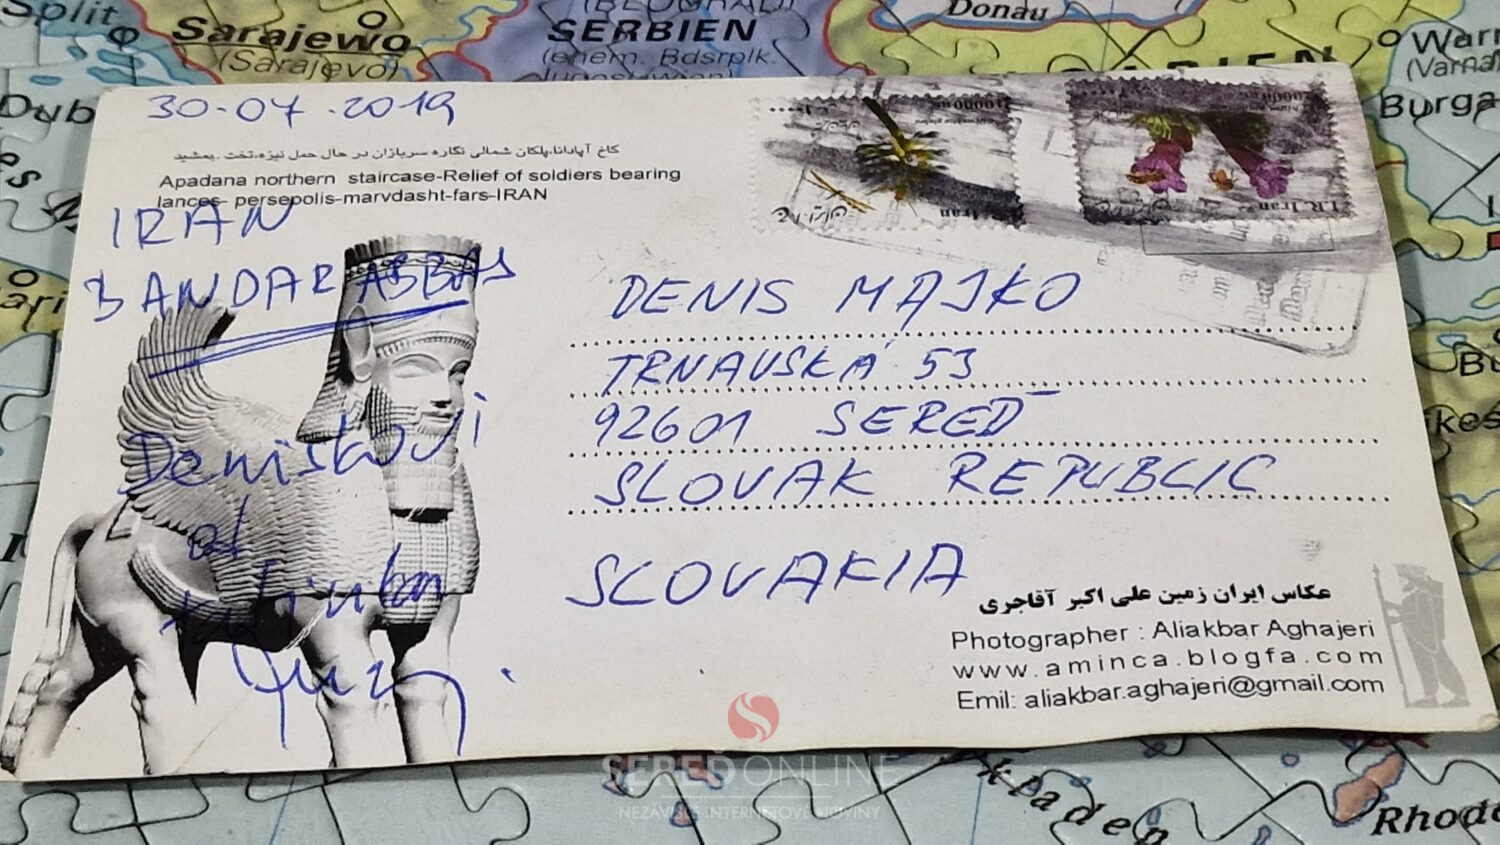 Split
Sarajewo
(Sarajevo)
SERBIEN
(ehem. Bdsrplk.
Donau
Warn
(Varna)
Burga
30-07.2019
کاخ آپادانا،پلکان شمالی نگاره سربازان در حال حمل نیزه،تخت .یمشید
Apadana northern staircase-Relief of soldiers bearing
lances- persepolis-marvdasht-fars-IRAN
IRAN
BANDAR ABBAS
Deniskovi
od
DENIS MAJKO
TRNAVSKÁ 53
92601 SEREĎ
SLOVAK REPUBLIC
SLOVAKIA
I.R.Iran
عکاس ایران زمین علی اکبر آقاجری
Photographer : Aliakbar Aghajeri
www.aminca.blogfa.com
Emil: aliakbar.aghajeri@gmail.com
SEREĎ ONLINE
NEZÁVISLÉ INTERNETOVÉ NOVINY
Rhodo